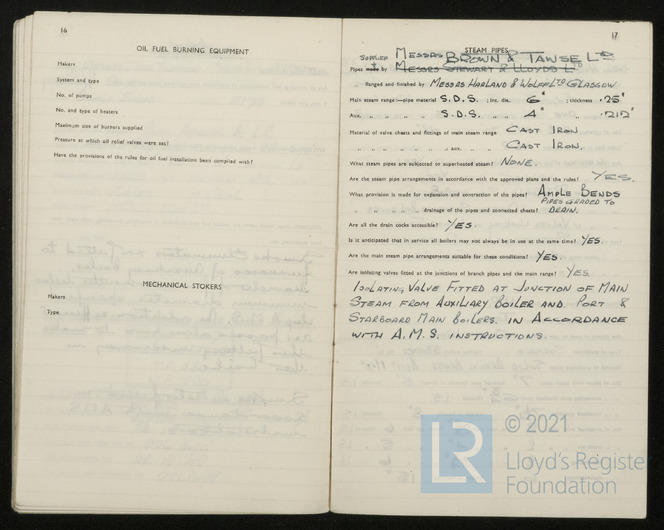 16
OIL FUEL BURNING EQUIPMENT
Makers
System and type
No. of pumps
No. and type of heaters
Maximum size of burners supplied
Pressure at which oil relief valves were set?
Have the provisions of the rules for oil fuel installation been complied with?
MECHANICAL STOKERS
Makers
Type
17
STEAM PIPES
SUPPLIED MESSRS BROWN & TAWSE LTD
Pipes made by MESSRS STEWART & LLOYDS LTD
Flanged and finished by MESSRS HARLAND & WOLFF LTD GLASGOW
Main steam range:—pipe material S.D.S. ; int. dia. 6" ; thickness .25"
Aux. „ „ S.D.S. „ 4" „ .212"
Material of valve chests and fittings of main steam range CAST IRON
„ „ „ „ „ aux. „ CAST IRON.
What steam pipes are subjected to superheated steam? NONE.
Are the steam pipe arrangements in accordance with the approved plans and the rules? YES.
What provision is made for expansion and contraction of the pipes? AMPLE BENDS
PIPES GRADED TO
„ „ „ drainage of the pipes and connected chests? DRAIN.
Are all the drain cocks accessible? YES
Is it anticipated that in service all boilers may not always be in use at the same time? YES.
Are the main steam pipe arrangements suitable for these conditions? YES
Are isolating valves fitted at the junctions of branch pipes and the main range? YES.
ISOLATING VALVE FITTED AT JUNCTION OF MAIN
STEAM FROM AUXILIARY BOILER AND PORT &
STARBOARD MAIN BOILERS. IN ACCORDANCE
WITH A.M.S. INSTRUCTIONS.
© 2021
LR
Lloyd's Register
Foundation